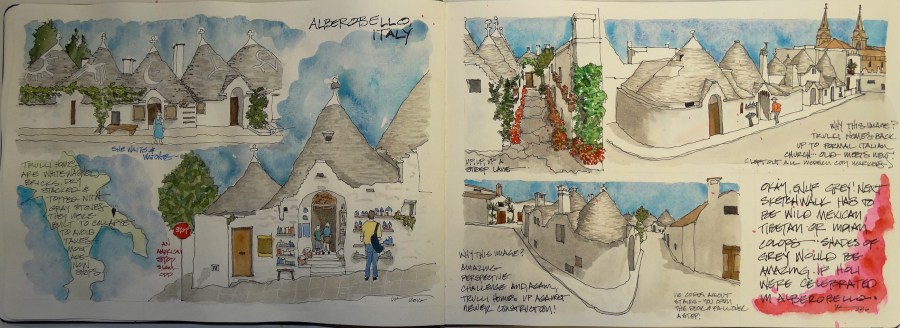 ALBEROBELLO,
ITALY
SHE WAITS &
WATCHES
TRULLI HOMES
ARE WHITEWASHED
BRICKS, DRY
STACKED &
TOPPED WITH
GRAY STONES.
THEY WERE
BUILT TO COLLAPSE
TO AVOID
TAXES
MOST
ARE
NOW
SHOPS.
STOP
AN
AMERICAN
STOP
SIGN
ODD
2012
UP, UP, UP A
STEEP LANE
WHY THIS IMAGE?
TRULLI HOMES BACK
UP TO FORMAL ITALIAN
CHURCH - OLD MEETS NEW!
(LEFT OUT ALL MODERN
WHY THIS IMAGE?
AMAZING
PERSPECTIVE
CHALLENGE AND, AGAIN,
TRULLI HOMES UP AGAINST
NEWER CONSTRUCTION!
ABOUT
STAIRS - YOU OPEN
THE DOOR & FALL OVER
A STEP.
OKAY, ENUF GREY! NEXT
SKETCHWALK HAS TO
BE WILD MEXICAN
TIBETAN OR INDIAN
COLORS - SHADES OF
GREY WOULD BE
AMAZING IF HOLI
WERE CELEBRATED
IN ALBEROBELLO.